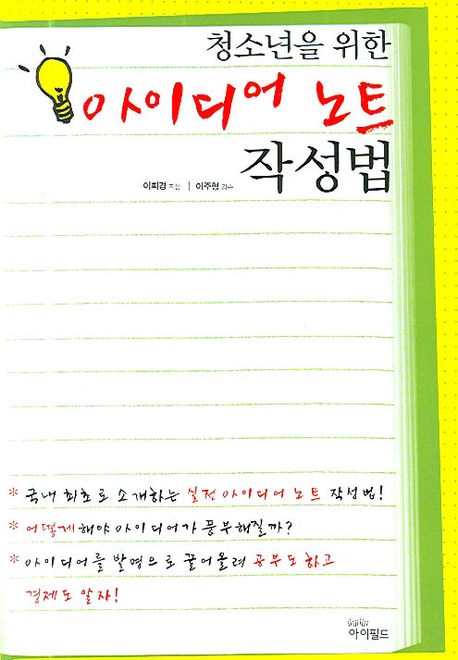 청소년을 위한
아이디어 노트
작성법
이희경 지음 | 이주형 감수
* 국내 최초로 소개하는 실전 아이디어 노트 작성법!
* 어떻게 해야 아이디어가 풍부해질까?
* 아이디어를 발명으로 끌어올려 공부도 하고
경제도 알자!
아이필드